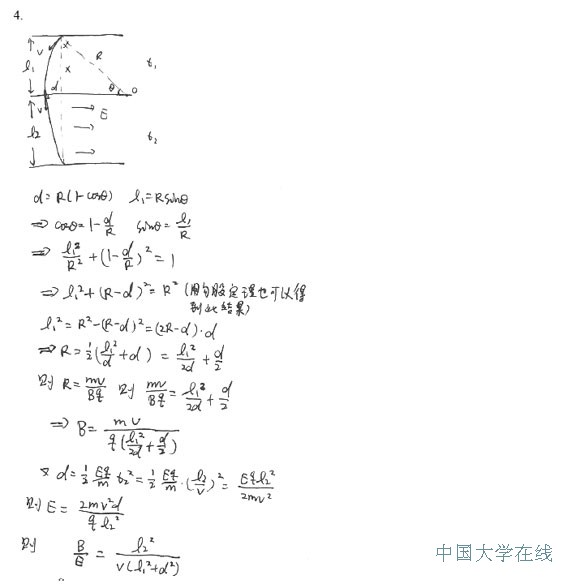 4.
l₁ v x R t₁
x
d θ O
v
l₂ → E t₂
d=R(1-cosθ) l₁=Rsinθ
⇒ cosθ=1-d/R sinθ=l₁/R
⇒ l₁²/R²+(1-d/R)²=1
⇒ l₁²+(R-d)²=R² (用勾股定理也可以得
到此结果)
l₁²=R²-(R-d)²=(2R-d)·d
⇒ R=1/2(l₁²/d+d)=l₁²/2d+d/2
则 R=mv/Bq 则 mv/Bq=l₁²/2d+d/2
⇒ B=mv/q(l₁²/2d+d/2)
又 d=1/2 Eq/m t₂²=1/2 Eq/m·(l₂/v)²=Eql₂²/2mv²
则 E=2mv²d/ql₂²
则 B/E=l₂²/v(l₁²+d²)
中国大学在线